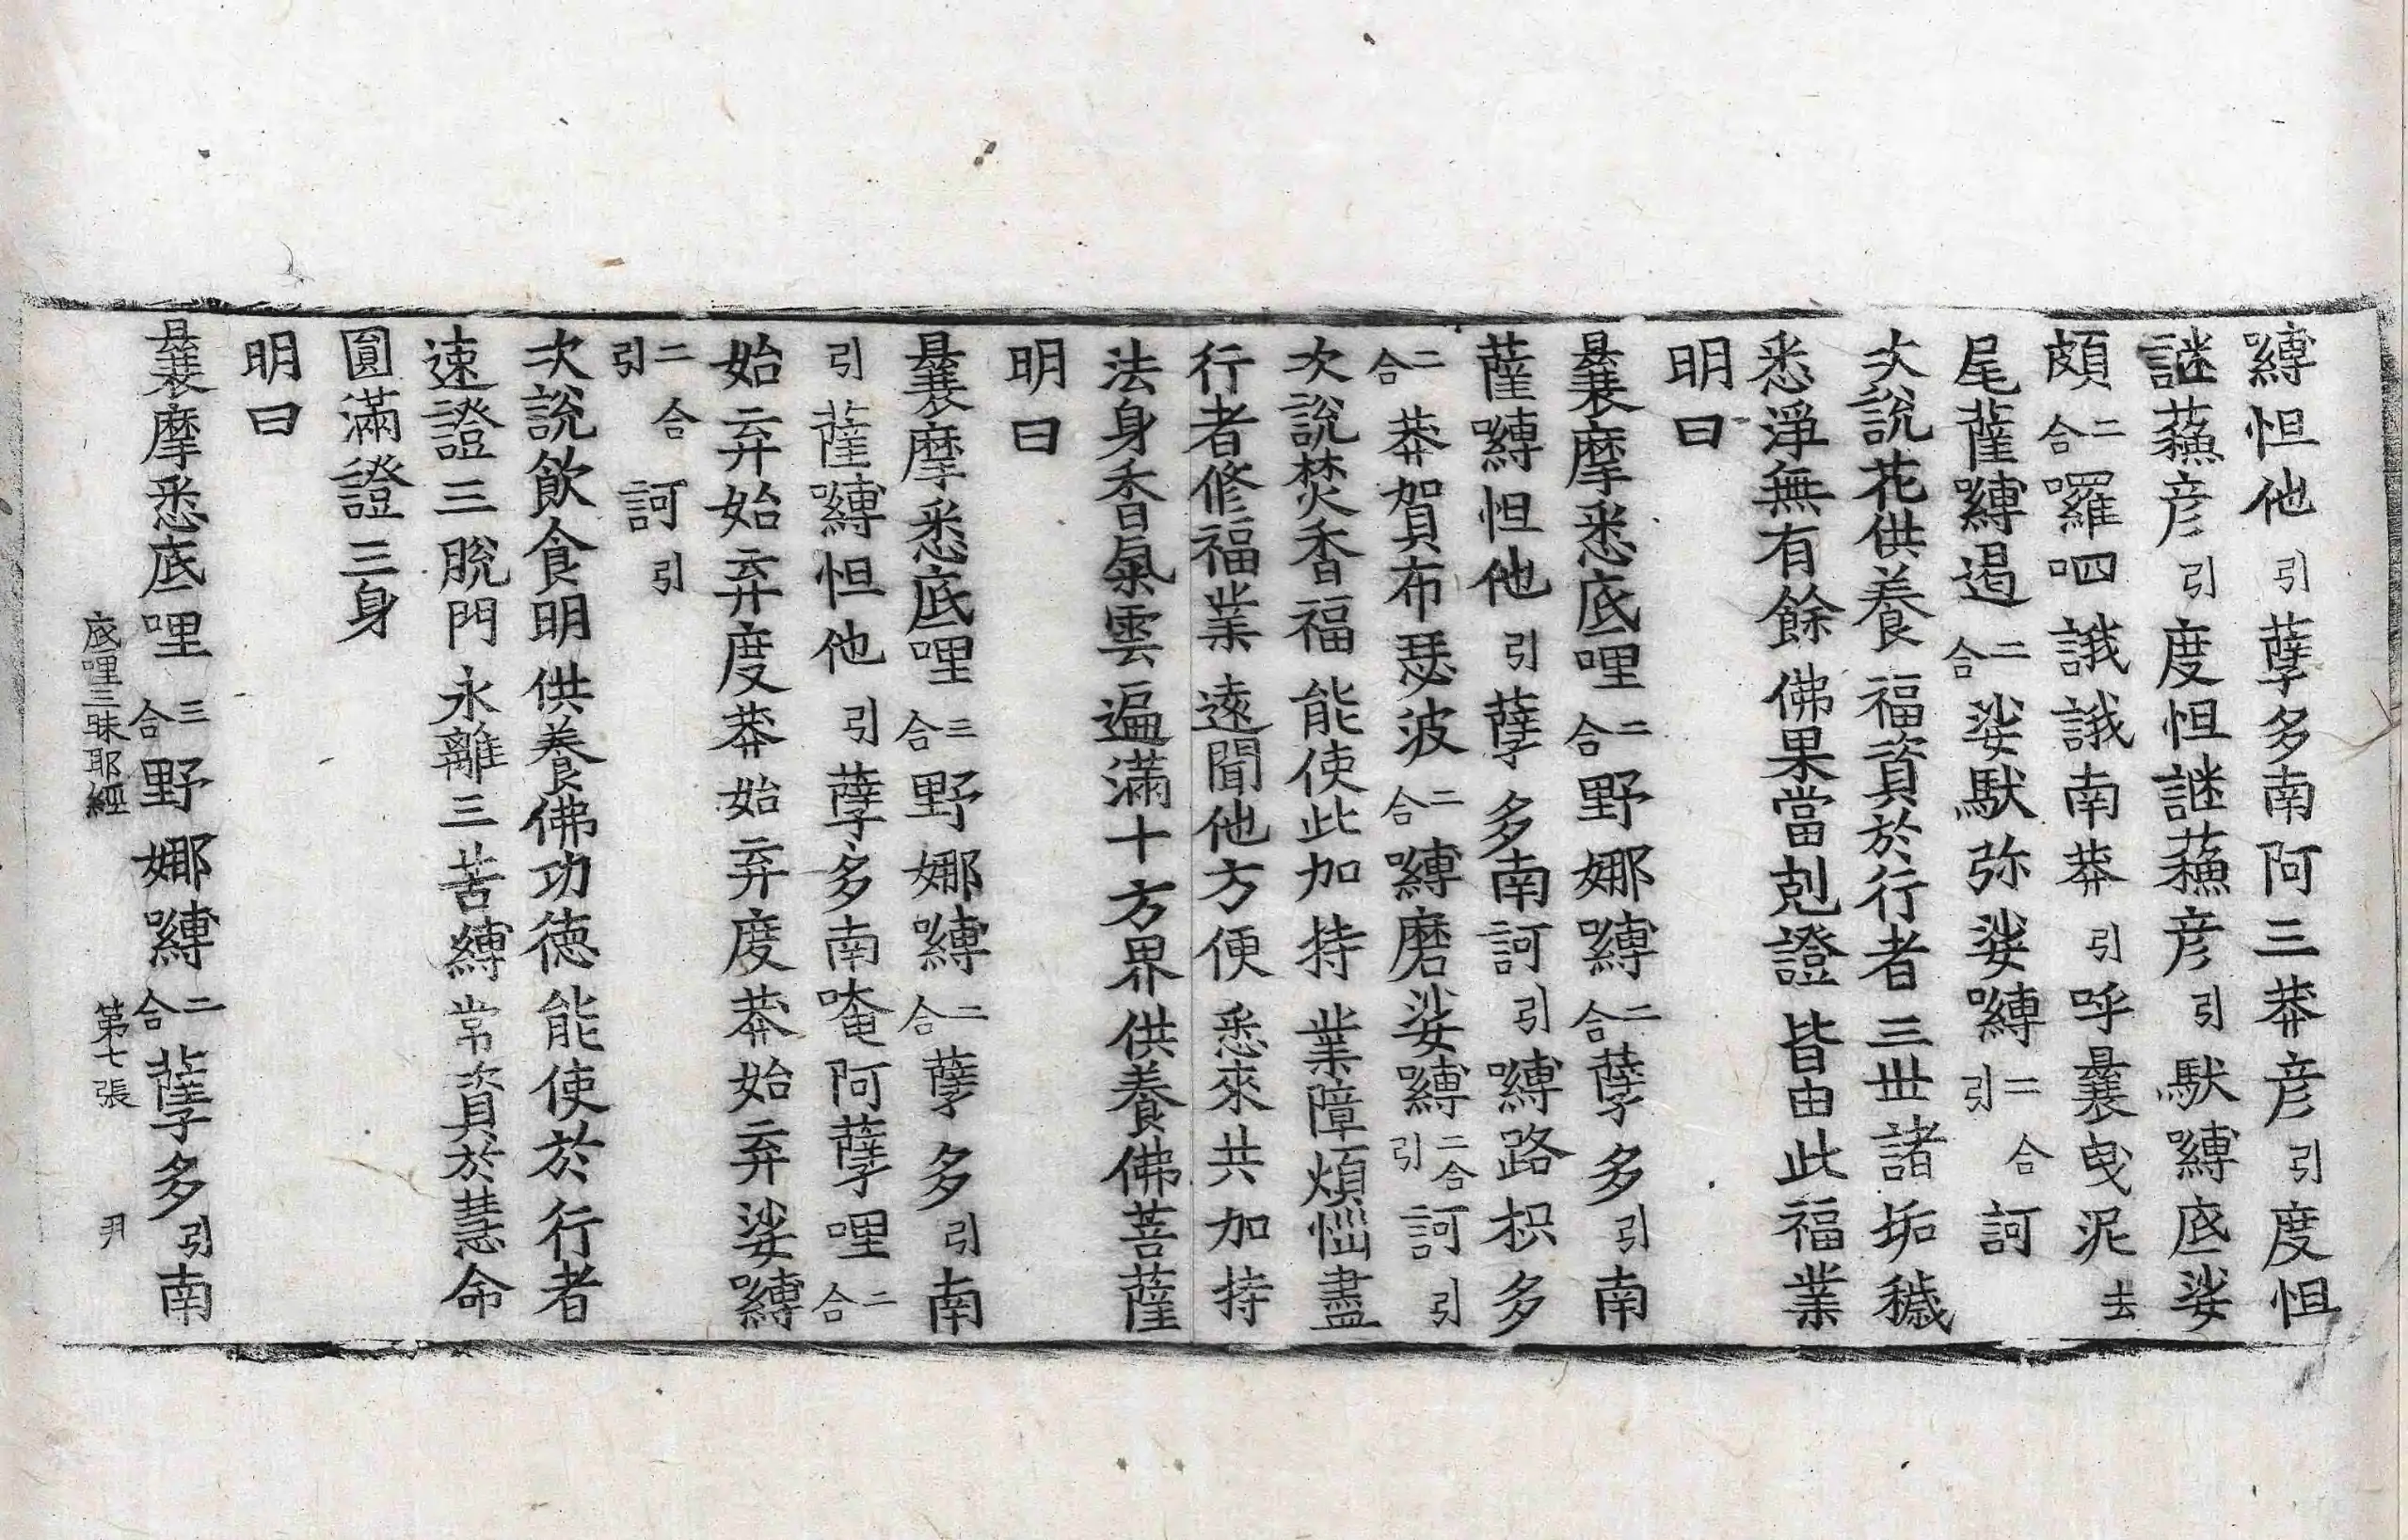 嚩怛他引孽多南阿三莽彦引度怛
謎蘓彦引度怛謎蘓彦引馱嚩底娑
頗二合囉呬誐誐南莽引呼曩曳泥去
尾薩嚩遏二合娑馱弥娑嚩二合引訶
次説花供養 福資於行者 三世諸垢穢
悉淨無有餘 佛果當剋證 皆由此福業
明曰
曩摩悉底哩二合野娜嚩二合孽多引南
薩嚩怛他引孽多南訶引嚩路枳多
二合莽賀布瑟波二合嚩磨娑嚩二合引訶引
次説焚香福 能使此加持 業障煩惱盡
行者修福業 遠聞他方便 悉來共加持
法身香氣雲 遍滿十方界 供養佛菩薩
明曰
曩摩悉底哩三合野娜嚩二合孽多引南
引薩嚩怛他引孽多南唵阿孽哩二合
始弃始弃度莽始弃度莽始弃娑嚩
二合引訶引
次説飲食明 供養佛功德 能使於行者
速證三脱門 永離三苦縛 常資於慧命
圓滿證三身
明曰
曩摩悉底哩三合野娜嚩二合孽多引南
底哩三昧耶經 第七張